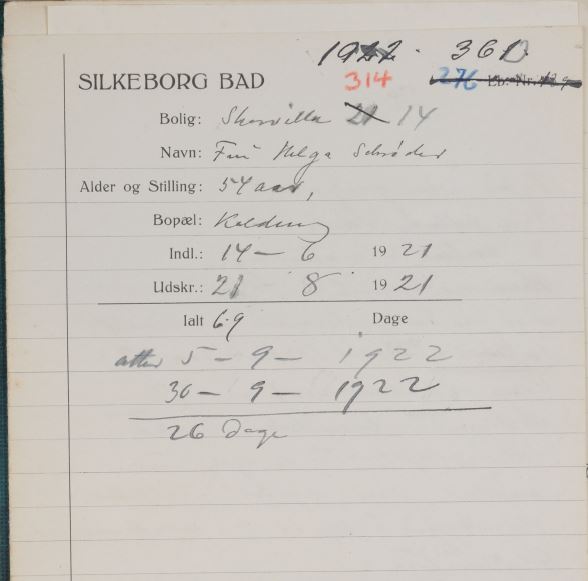 1922. 361
SILKEBORG BAD 314 276 Lb. Nr.
Bolig: Skovvilla 21 14
Navn: Fru Helga Schrøder
Alder og Stilling: 54 aar,
Bopæl: Kolding
Indl.: 14 - 6 1921
Udskr.: 21 8 1921
Ialt 69 Dage
atter 5 - 9 - 1922
30 - 9 - 1922
26 Dage